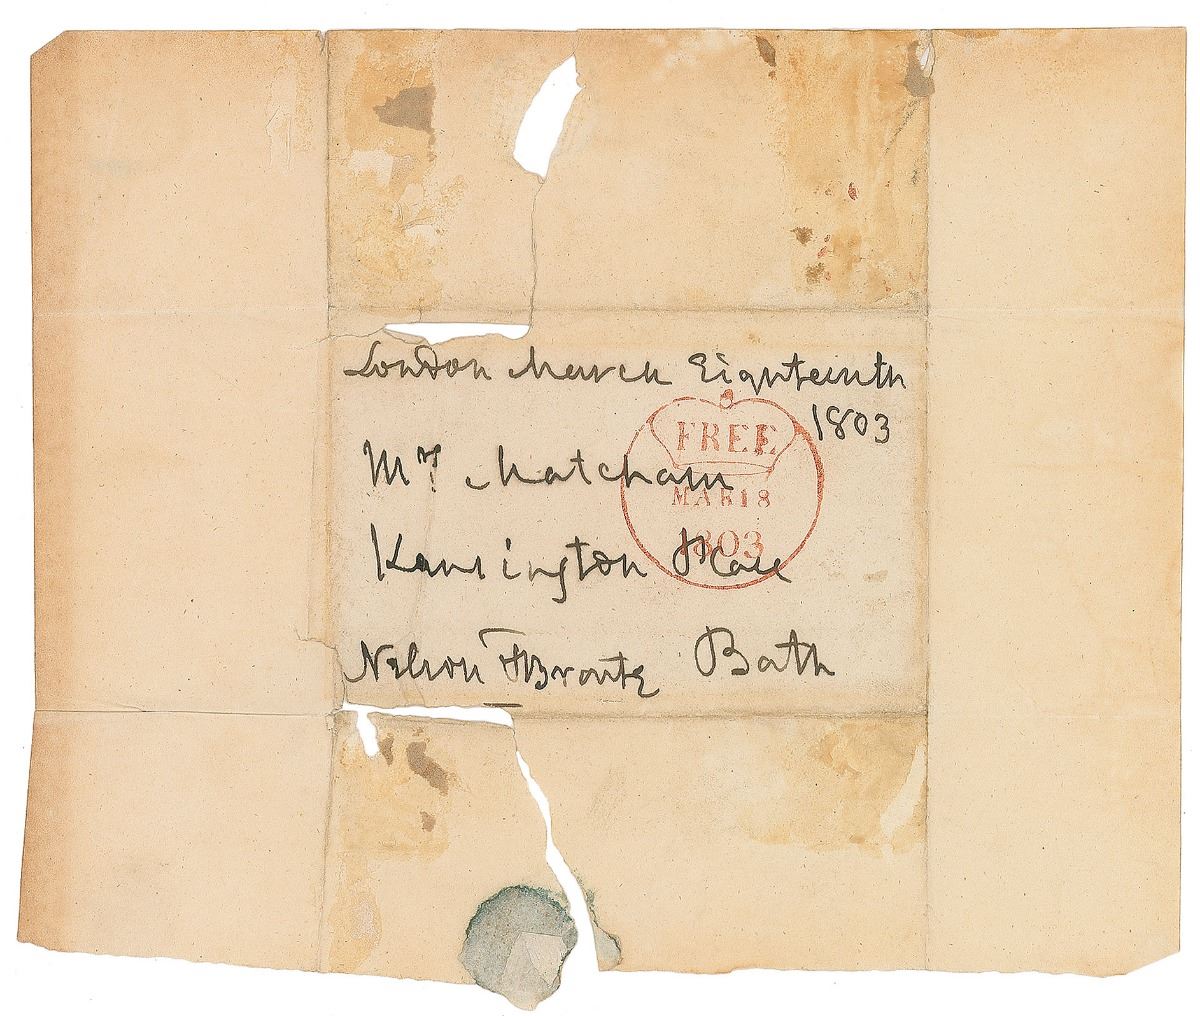 London March Eighteinth
1803
Mrs Matcham
Kensington Place
Nelson & Bronte Bath
FREE
MAR 18
1803